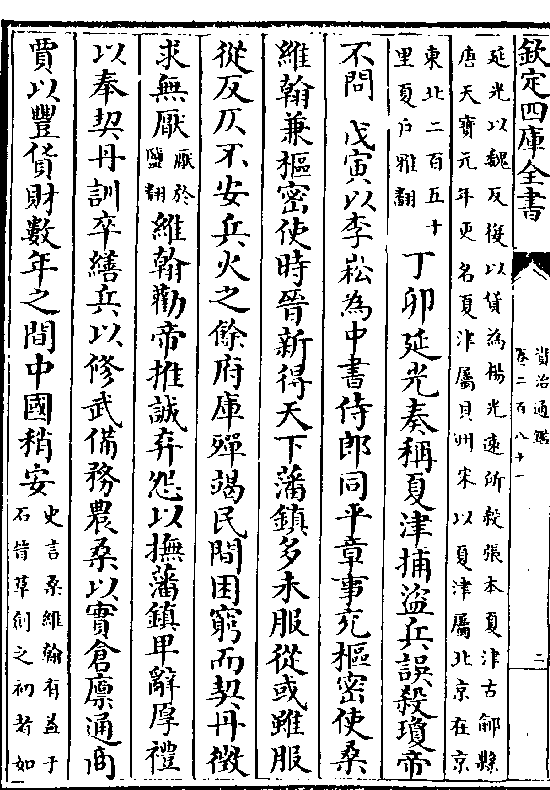 欽定四庫全書
資治通鑑
卷二百八十一
二
延光以魏反復以貨為楊光遠所殺張本夏津古鄃縣
唐天寶元年更名夏津屬貝州宋以夏津屬北京在京
東北二百五十
里夏户雅翻
丁卯延光奏稱夏津捕盜兵誤殺瓊帝
不問 戊寅以李崧為中書侍郎同平章事充樞密使桑
維翰兼樞密使時晉新得天下藩鎮多未服從或雖服
從反仄不安兵火之餘府庫殫竭民間困窮而契丹徵
求無厭
厭於
鹽翻
維翰勸帝推誠弃怨以撫藩鎮卑辭厚禮
以奉契丹訓卒繕兵以修武備務農桑以實倉廩通商
賈以豐貨財數年之間中國稍安
史言桑維翰有益于
石晉草創之初者如